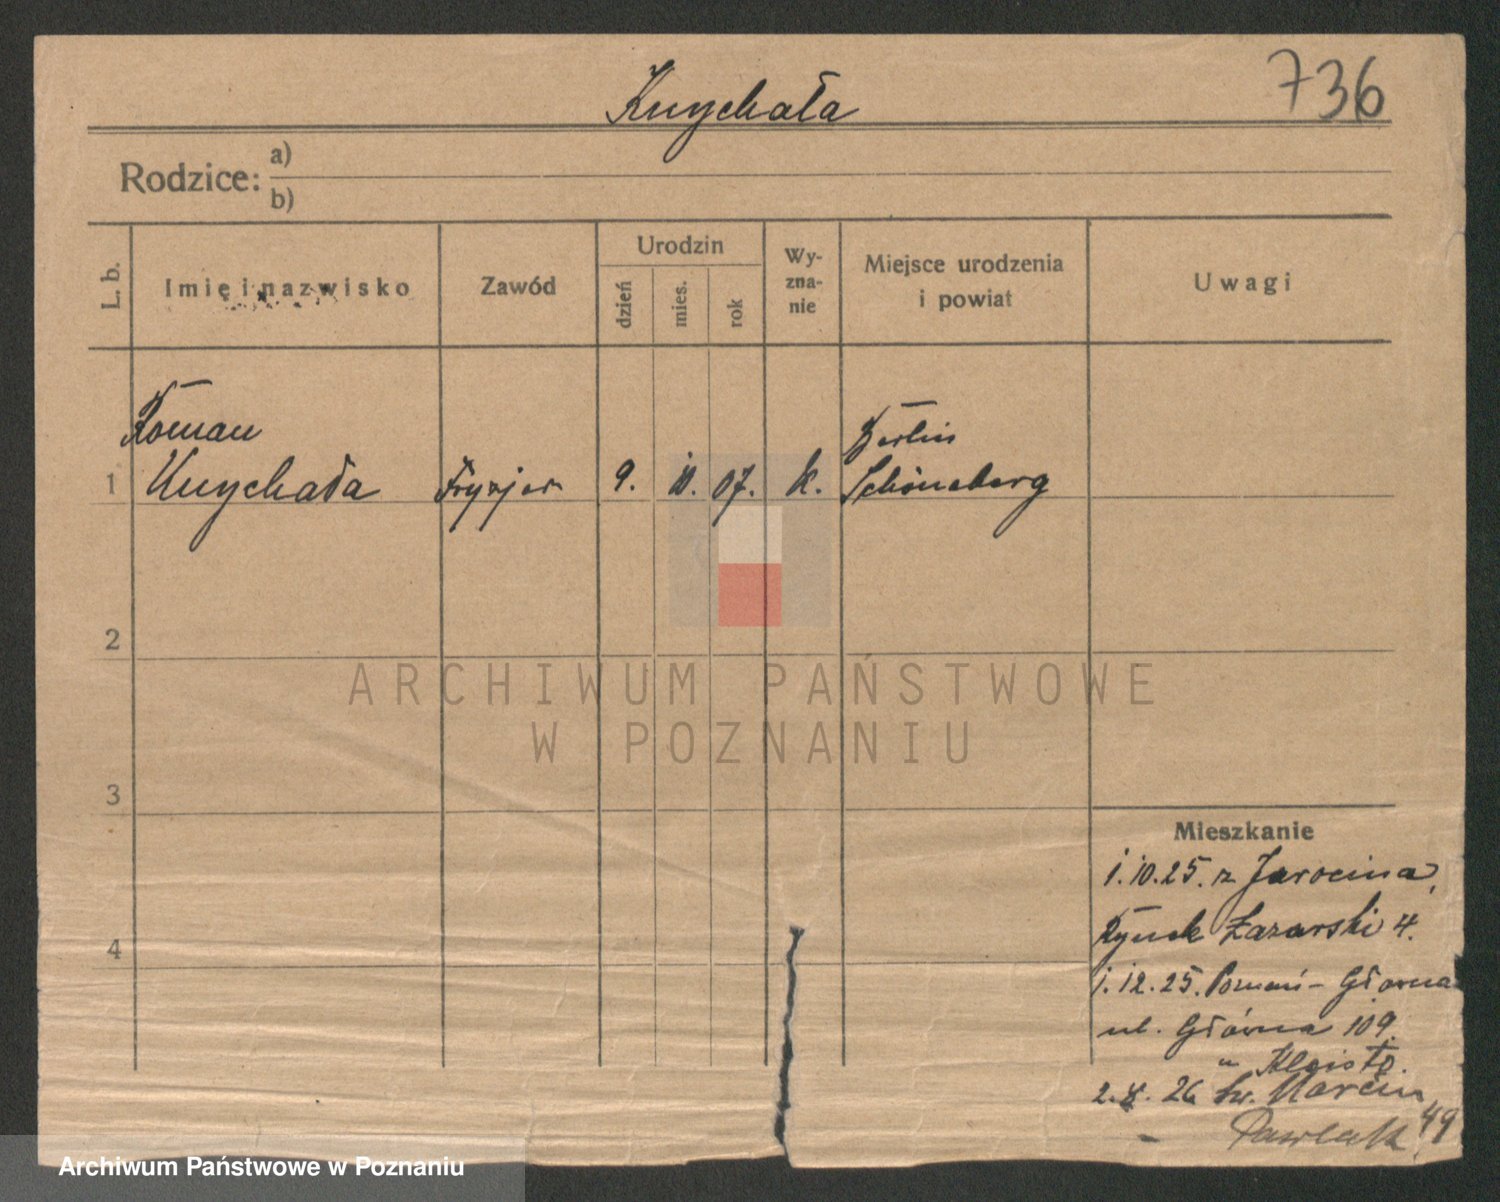 Knychała
736
Rodzice: a)
b)
L. b.
Imię i nazwisko
Zawód
Urodzin
dzień
mies.
rok
Wy-
zna-
nie
Miejsce urodzenia
i powiat
Uwagi
Roman
1 Knychała Fryzjer 9. 10. 07. k. Berlin
Schöneberg
2
3
4
Mieszkanie
1.10.25. z Jarocina,
Rynek Łazarski 4.
1.12.25. Poznań - Główna
ul. Główna 109.
" 
2. 8. 26 św. Marcin 49
Pawlak
ARCHIWUM PAŃSTWOWE
W POZNANIU
Archiwum Państwowe w Poznaniu